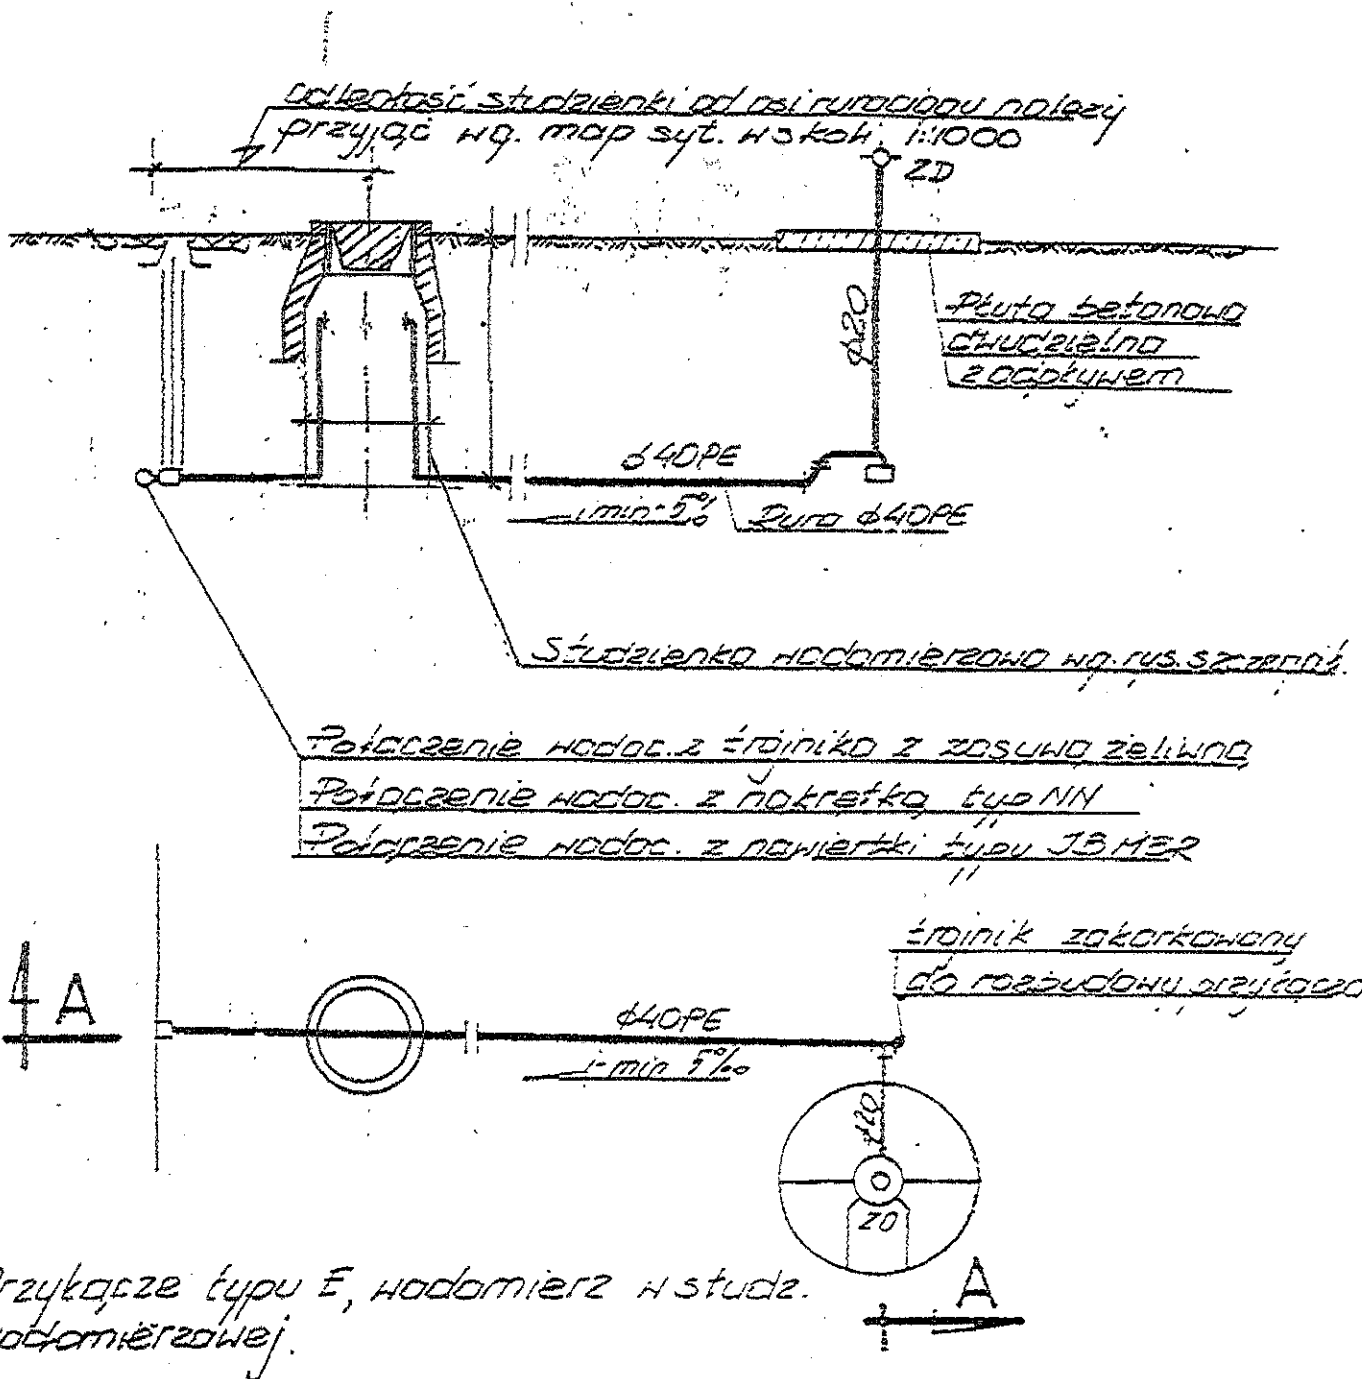 odległość studzienki od osi rurociągu należy
przyjąć wg. map syt. w skali 1:1000
ZD
Płyta betonowa
dwudzielna
z odpływem
ϕ20
ϕ40PE
i min-5‰
Rura ϕ40PE
Studzienka wodomierzowa wg. rys. szczegół.
Połączenie wodoc. z trójnika z zasuwą żeliwną
Połączenie wodoc. z nakrętką typ NN
Połączenie wodoc. z nawiertki typu
trójnik zakorkowany
do rozbudowy przyłącza
A
ϕ40PE
i-min 5‰
ϕ20
ZD
A
Przyłącze typu E, wodomierz w studz.
wodomierzowej.